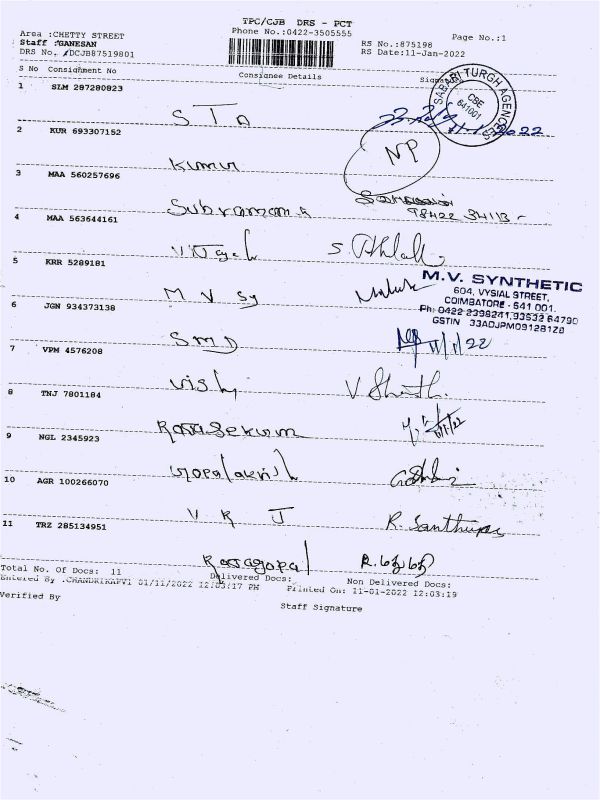 TPC/CJB DRS - PCT
Area :CHETTY STREET
Phone No.:0422-3505555
Page No.:1
Staff :GANESAN
RS No.:875198
DRS No. :DCJB87519801
RS Date:11-Jan-2022
S No Consignment No
Consignee Details
Signature
SABARI TURGH AGENCIES
CBE
641001
1 SLM 287280823
STA
11.1.2022
2 KUR 693307152
Kumar
NP
3 MAA 560257696
Subramani
98422 34113
4 MAA 563644161
5 KRR 5289181
M V Sy
M.V. SYNTHETIC
604, VYSIAL STREET,
COIMBATORE - 641 001.
Ph: 0422 2398241, 93632 64790
GSTIN 33ADJPM0912B1Z8
6 JGN 934373138
SMD
11/1/22
7 VPM 4576208
Vish
8 TNJ 7801184
Rajasekaran
11/1/22
9 NGL 2345923
Gopalakrish
10 AGR 100266070
V R J
R. Santhiya
11 TRZ 285134951
Rajagopal
Total No. Of Docs: 11
Delivered Docs:
Non Delivered Docs:
Entered By :CHANDRIKAPV1 01/11/2022 12:03:17 PM
Printed On: 11-01-2022 12:03:19
Verified By
Staff Signature